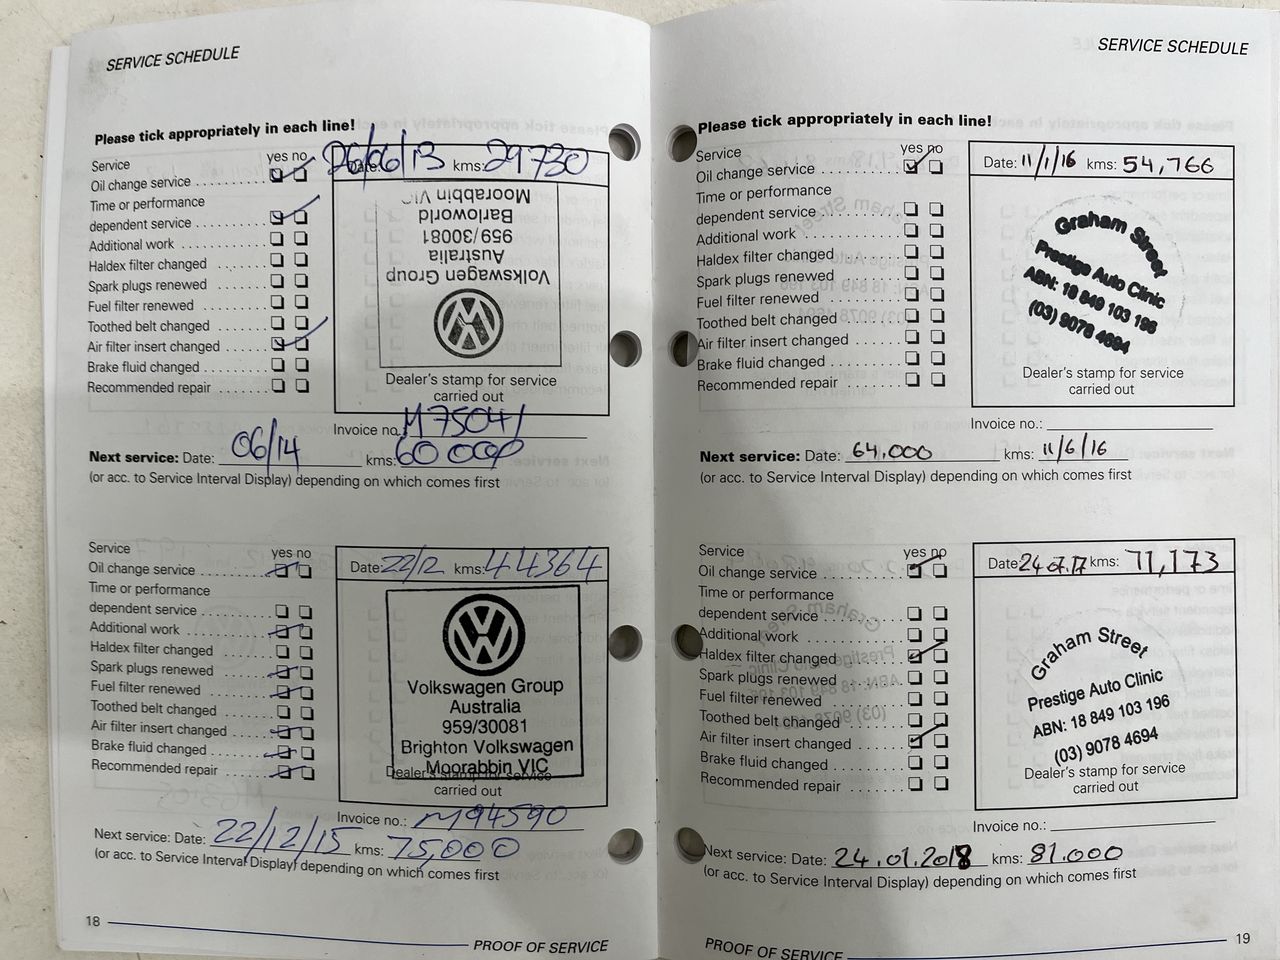 SERVICE SCHEDULE
Please tick appropriately in each line!
Service yes no
Oil change service
Time or performance
dependent service
Additional work
Haldex filter changed
Spark plugs renewed
Fuel filter renewed
Toothed belt changed
Air filter insert changed
Brake fluid changed
Recommended repair
Date: 26/06/13 kms: 29730
Volkswagen Group
Australia
959/30081
Barloworld
Moorabbin VIC
Dealer's stamp for service
carried out
Invoice no.: M75041
Next service: Date: 06/14 kms: 60 000
(or acc. to Service Interval Display) depending on which comes first
Service yes no
Oil change service
Time or performance
dependent service
Additional work
Haldex filter changed
Spark plugs renewed
Fuel filter renewed
Toothed belt changed
Air filter insert changed
Brake fluid changed
Recommended repair
Date: 22/12 kms: 44364
Volkswagen Group
Australia
959/30081
Brighton Volkswagen
Moorabbin VIC
Dealer's stamp for service
carried out
Invoice no.: M94590
Next service: Date: 22/12/15 kms: 75,000
(or acc. to Service Interval Display) depending on which comes first
18
PROOF OF SERVICE
SERVICE SCHEDULE
Please tick appropriately in each line!
Service yes no
Oil change service
Time or performance
dependent service
Additional work
Haldex filter changed
Spark plugs renewed
Fuel filter renewed
Toothed belt changed
Air filter insert changed
Brake fluid changed
Recommended repair
Date: 11/1/16 kms: 54,766
Graham Street
Prestige Auto Clinic
ABN: 18 849 103 196
(03) 9078 4694
Dealer's stamp for service
carried out
Invoice no.:
Next service: Date: 64,000 kms: 11/6/16
(or acc. to Service Interval Display) depending on which comes first
Service yes no
Oil change service
Time or performance
dependent service
Additional work
Haldex filter changed
Spark plugs renewed
Fuel filter renewed
Toothed belt changed
Air filter insert changed
Brake fluid changed
Recommended repair
Date: 24.07.17 kms: 71,173
Graham Street
Prestige Auto Clinic
ABN: 18 849 103 196
(03) 9078 4694
Dealer's stamp for service
carried out
Invoice no.:
Next service: Date: 24.01.2018 kms: 81.000
(or acc. to Service Interval Display) depending on which comes first
PROOF OF SERVICE
19